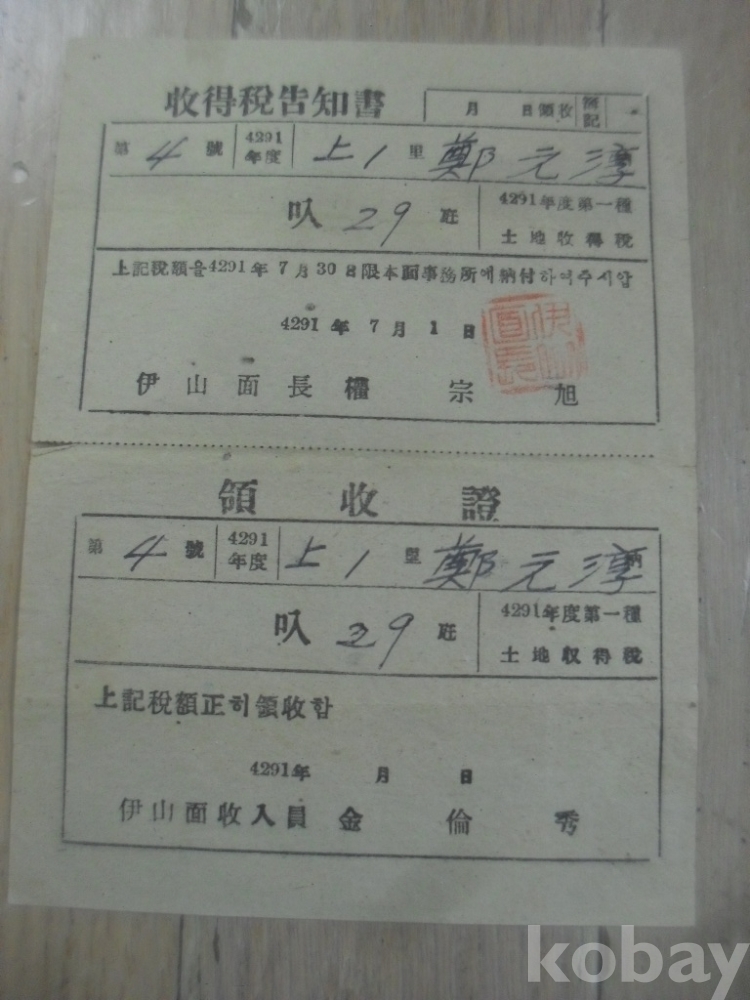 收得稅告知書
月 日領收 簿記
第 4 號 4291年度 上 1 里 鄭元淳 納
叺 29 瓩 4291年度第一種 土地收得稅
上記稅額을4291年7月30日限本面事務所에納付하여주시압
4291年7月1日
伊山面長 權宗旭
伊山面長
領收證
第 4 號 4291年度 上 1 里 鄭元淳 納
叺 29 瓩 4291年度第一種 土地収得稅
上記稅額正히領收함
4291年 月 日
伊山面收入員 金倫秀
kobay